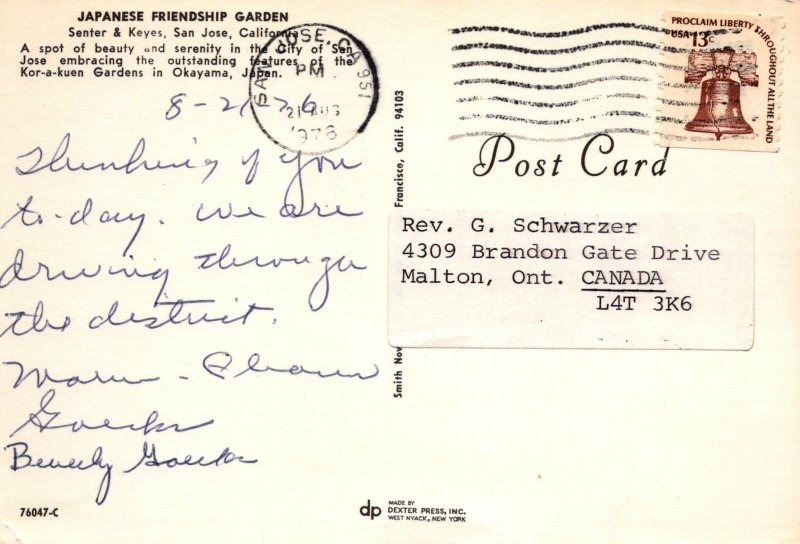 JAPANESE FRIENDSHIP GARDEN
Senter & Keyes, San Jose, California
A spot of beauty and serenity in the City of San
Jose embracing the outstanding features of the
Kor-a-kuen Gardens in Okayama, Japan.
SAN JOSE, CA 951
PM
21 AUG
1976
PROCLAIM LIBERTY THROUGHOUT ALL THE LAND
USA 13c
8-21-76
Thinking of you
to-day. We are
driving through
the district.
Warm -
Beverly
Post Card
Rev. G. Schwarzer
4309 Brandon Gate Drive
Malton, Ont. CANADA
L4T 3K6
Smith Nov
Francisco, Calif. 94103
76047-C
dp
MADE BY
DEXTER PRESS, INC.
WEST NYACK, NEW YORK